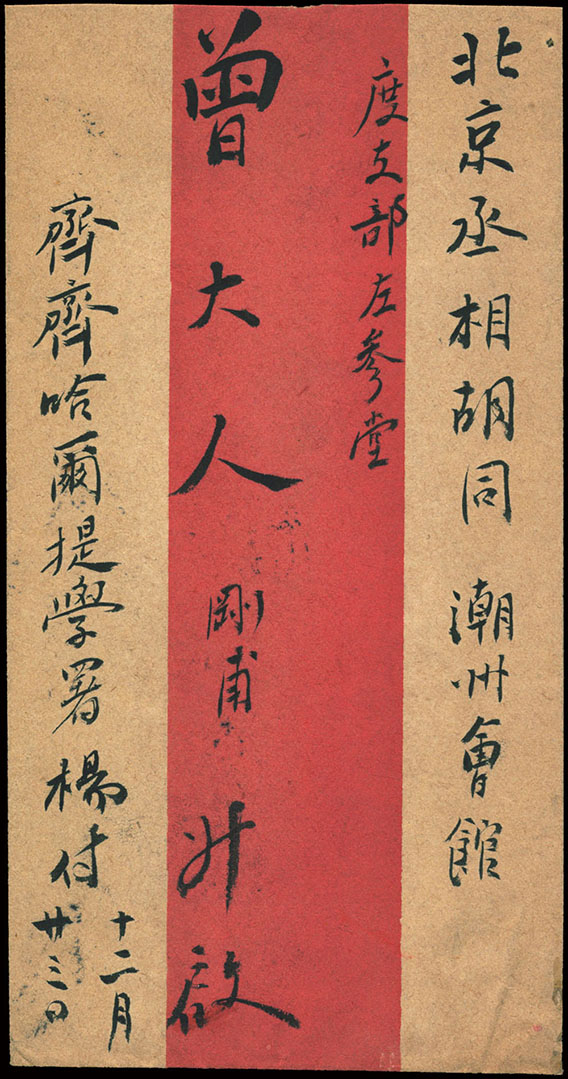 北京丞相胡同 潮州會館
度支部左參堂
曾大人 剛甫 升啟
齊齊哈爾提學署楊付
十二月
廿三日